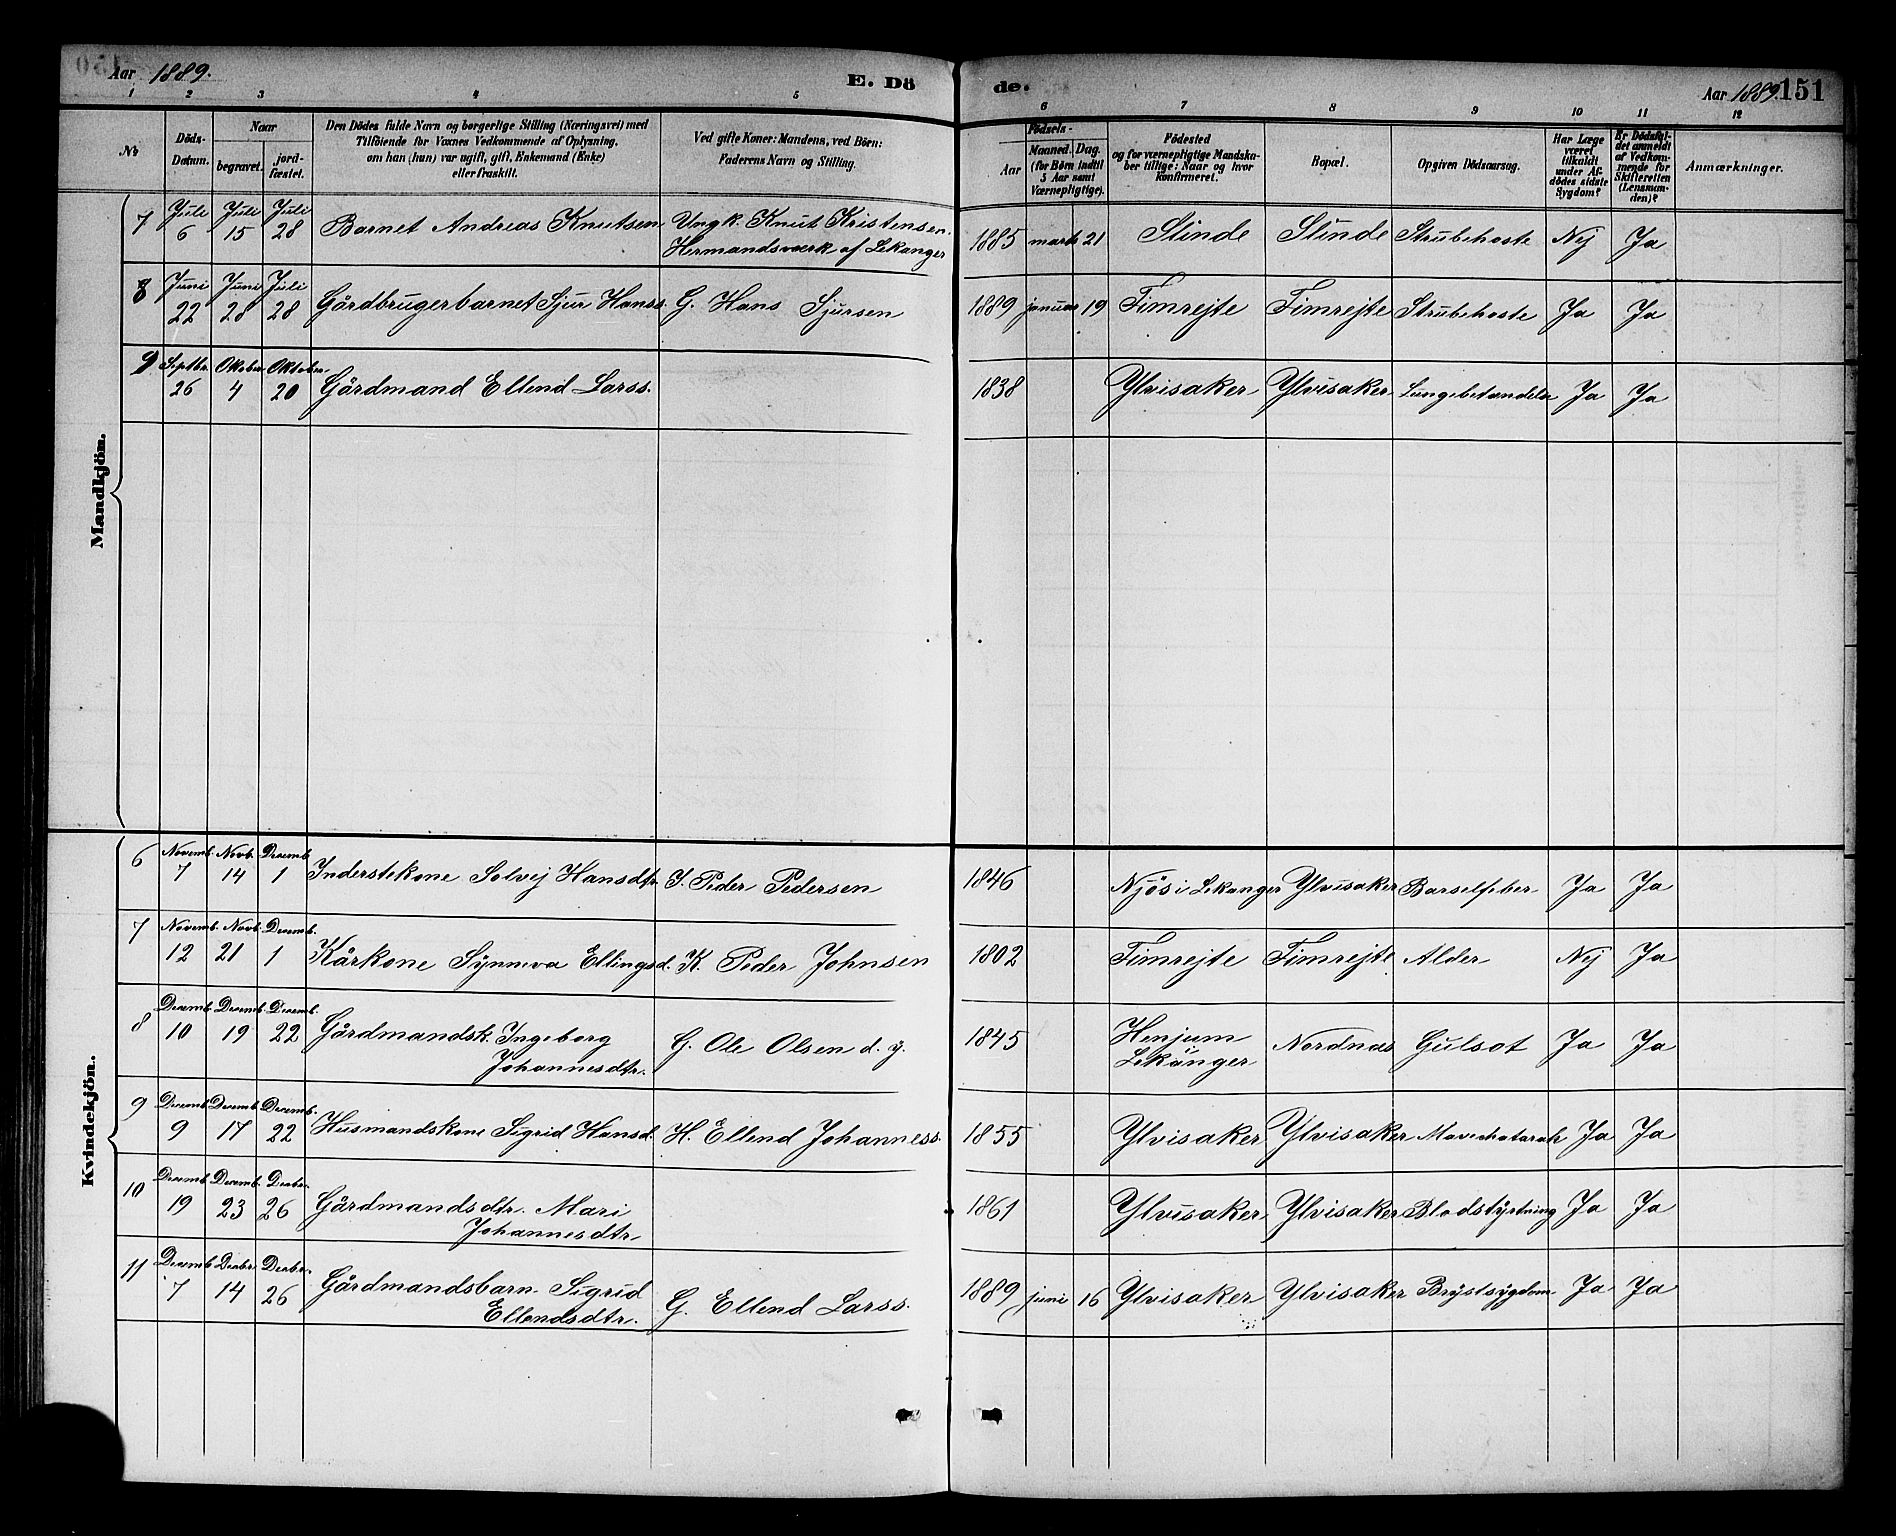 Aar 1889. E. Döde. Aar 1889. 151
1 2 3 4 5 6 7 8 9 10 11 12
No
Döds-Datum.
Naar
begravet.
jord-fæstet.
Den Dödes fulde Navn og borgerlige Stilling (Næringsvei) med
Tilföiende for Voxnes Vedkommende af Oplysning,
om han (hun) var ugift, gift, Enkemand (Enke)
eller fraskilt.
Ved gifte Koner: Mandens, ved Börn:
Faderens Navn og Stilling.
Födsels-
Aar
Maaned. Dag.
(for Börn indtil
5 Aar samt
Værnepligtige).
Födested
og for værnepligtige Mandska-
ber tillige: Naar og hvor
konfirmeret.
Bopæl.
Opgiven Dödsaarsag.
Har Læge
været
tilkaldt
under Af-
dödes sidste
Sygdom?
Er Dödsfal-
det anmeldt
af Vedkom-
mende for
Skifteretten
(Lensman-
den)?
Anmærkninger.
Mandkjön.
7 Juli 6 Juli 15 Juli 28 Barnet Andreas Knutsen Ungk. Knut Kristensen.
Hermandsværk af Lekanger 1885 marts 21 Slinde Slinde Strubehoste Nej Ja
8 Juni 22 Juni 28 Juli 28 Gårdbrugerbarnet Sjur Hanss. G. Hans Sjursen 1889 januar 19 Fimrejte Fimrejte Strubehoste Ja Ja
9 Septbr. 26 Oktober 4 Oktober 20 Gårdmand Ellend Larss. 1838 Ylvisaker Ylvisaker Lungebetændelse Ja Ja
Kvindekjön.
6 Novemb. 7 Novb. 14 Decemb. 1 Inderstekone Solvej Hansdtr. I. Peder Pedersen 1846 Njøs i Lekanger Ylvisaker Barselfeber Ja Ja
7 Novemb. 12 Novb. 21 Decemb. 1 Kårkone Synneva Ellingsd. K. Peder Johnsen 1802 Fimrejte Fimrejte Alder Nej Ja
8 Decemb. 10 Decemb. 19 Decemb. 22 Gårdmandsk. Ingeborg
Johannesdtr. G. Ole Olsen d. y. 1845 Henjum
Lekanger Nordnæs Gulsot Ja Ja
9 Decemb. 9 Decemb. 17 Decemb. 22 Husmandskone Sigrid Hansd. H. Ellend Johanness. 1855 Ylvisaker Ylvisaker Mavekatarah Ja Ja
10 Decemb. 19 Decemb. 23 Decbr. 26 Gårdmandsdtr. Mari
Johannesdtr. 1861 Ylvisaker Ylvisaker Blodstyrtning Ja Ja
11 Decemb. 7 Decbr. 14 Decbr. 26 Gårdmandsbarn Sigrid
Ellendsdtr. G. Ellend Larss. 1889 juni 16 Ylvisaker Ylvisaker Brystsygdom Ja Ja